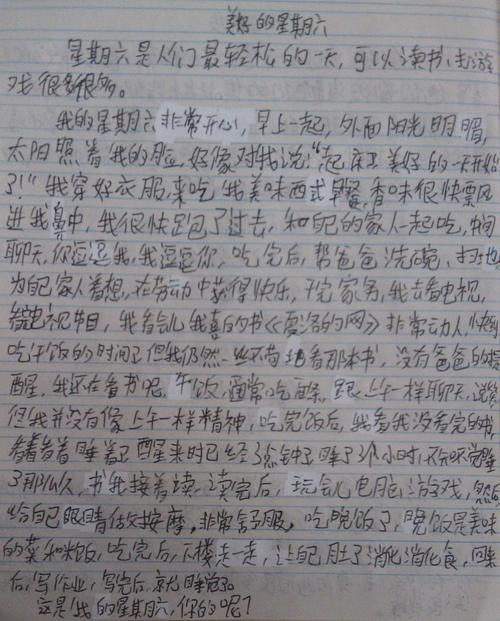 美好的星期六
星期六是人们最轻松的一天,可以读书、去游
戏很多很多。
我的星期六非常开心,早上一起,外面阳光明媚,
太阳照着我的脸,好像对我说:“起床了美好的一天开始
了!”我穿好衣服,来吃我美味西式早餐,香味很快飘
进我鼻中,我很快跑了过去,和自己的家人一起吃,中间
聊天,你逗逗我,我逗逗你,吃完后,帮爸爸洗碗、扫地
为自己家人着想,在劳动中获得快乐,干完家务,我去看电视,
电视节目,我看会儿我喜的书《夏洛的网》非常动人,快到
吃午饭的时间了但我仍然一丝不苟地看那本书,没有爸爸的提
醒,我还在看书呢。午饭,通常吃面条,跟上午一样聊天、
但我并没有像上午一样精神,吃完饭后,我看我没看完的书
看着看着睡着了醒来时已经3点钟了睡了3个小时,不知不觉睡
了那么久,书我接着读,读完后,玩会儿电脑游戏,然后
给自己眼睛做按摩,非常舒服,吃晚饭了,晚饭是美味
的菜和米饭,吃完后,下楼走一走,让自己肚子消化消化食,回来
后,写作业,写完后,就睡觉了。
这是我的星期六,你的呢?